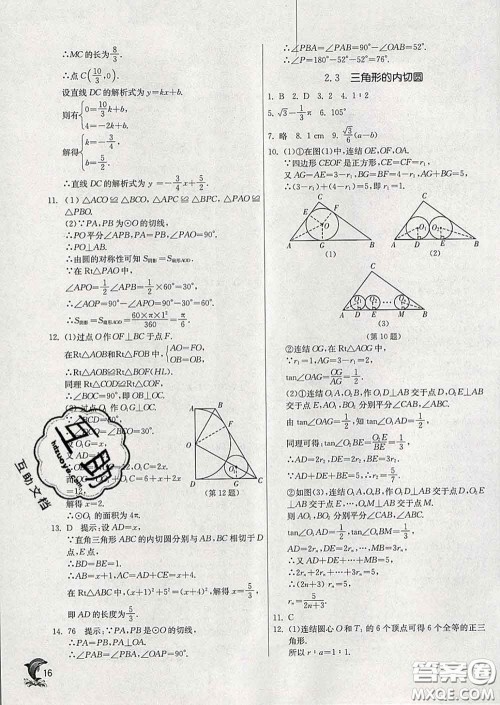 ∴MC 的长为 8/3.
∴点 C(10/3,0).
设直线 DC 的解析式为 y=kx+b.
则有{0=10/3k+b, 4=-2k+b.
解得{k=-3/4, b=5/2.
∴直线 DC 的解析式为 y=-3/4x+5/2.
11. (1) △ACO≌△BCO, △APC≌△BPC, △APO≌
△PBO.
(2)∵PA,PB 为⊙O 的切线,
∴PO平分∠APB,PA=PB,∠PAO=90°.
∴PO⊥AB.
∴由圆的对称性可知 S阴影=S扇形AOD.
∵在 Rt△PAO 中,
∠APO=1/2∠APB=1/2×60°=30°,
∴∠AOP=90°-∠APO=90°-30°=60°.
∴S阴影=S扇形AOD=60×π×1²/360=π/6.
12. (1)过点 O 作 OF⊥BC 于点 F.
在 Rt△AOB 和Rt△FOB 中,{AO=FO, OB=OB,
∴Rt△AOB≌Rt△FOB(HL).
同理 Rt△COD≌Rt△COF.
∴∠BOC=90°, 即 OB⊥OC.
(第 12 题)
13. D 提示:设 AD=x.
∵直角三角形 ABC 的内切圆分别与 AB、BC 相切于 D
点、E 点,
∴BD=BE=1.
∴AB=x+1,AC=AD+CE=x+4.
在 Rt△ABC 中,(x+1)²+5²=(x+4)², 解得 x=5/3.
即 AD 的长度为 5/3.
14. 76 提示:∵PA,PB 是⊙O 的切线,
∴PA=PB,PA⊥OA.
∴∠PAB=∠PBA,∠OAP=90°.
16
∴∠PBA=∠PAB=90°-∠OAB=90°-38°=52°.
∴∠P=180°-52°-52°=76°.
2.3 三角形的内切圆
1. B 2. D 3. 2 4. 1∶2
5. √3-1/3π 6. 105°
7. 略 8. 1 cm 9. √3/6(a-b)
10. (1)①在图(1)中, 连结 OE,OF,OA.
∵四边形 CEOF 是正方形,CE=CF=r₁.
又 AG=AE=3-r₁,BG=BF=4-r₁,
AG+BG=5,
∴(3-r₁)+(4-r₁)=5, 即 r₁=1.
(1) (2)
(3)
(第 10 题)
②连结 OG, 在 Rt△AOG 中,
∵r₁=1,AG=3-r₁=2,
tan∠OAG=OG/AG=1/2.
(2)①连结 O₁A、O₂B, 作 O₁D⊥AB 交于点 D、O₂E⊥AB
交于点 E,AO₁、BO₂分别平分∠CAB、∠ABC.
由 tan∠OAG=1/2, 知 tan∠O₁AD=1/2,
同理可得: tan∠O₂BE=O₂E/BE=1/3,
∴AD=2r₂,DE=2r₂,BE=3r₂.
∵AD+DE+BE=5, r₂=5/7.
②如图(3), 连结 O₁A、OₙB, 作 O₁D⊥AB 交于点 D、
OₙE⊥AB 交于点 E.
则 AO₁、BOₙ 分别平分∠CAB、∠ABC.
tan∠O₁AD=1/2, tan∠OₙBE=1/3,
AD=2rₙ,DE=(2n-2)rₙ,BE=3rₙ.
又 AD+DE+BE=5,
2rₙ+(2n-2)rₙ+3rₙ=5,
∴(2n+3)rₙ=5,
rₙ=5/(2n+3).
11. C
12. (1)连结圆心 O 和 T₁ 的 6 个顶点可得 6 个全等的正三
角形.
所以 r₁∶a=1∶1.
互助
互助文档
答案圈
MXQE.COM